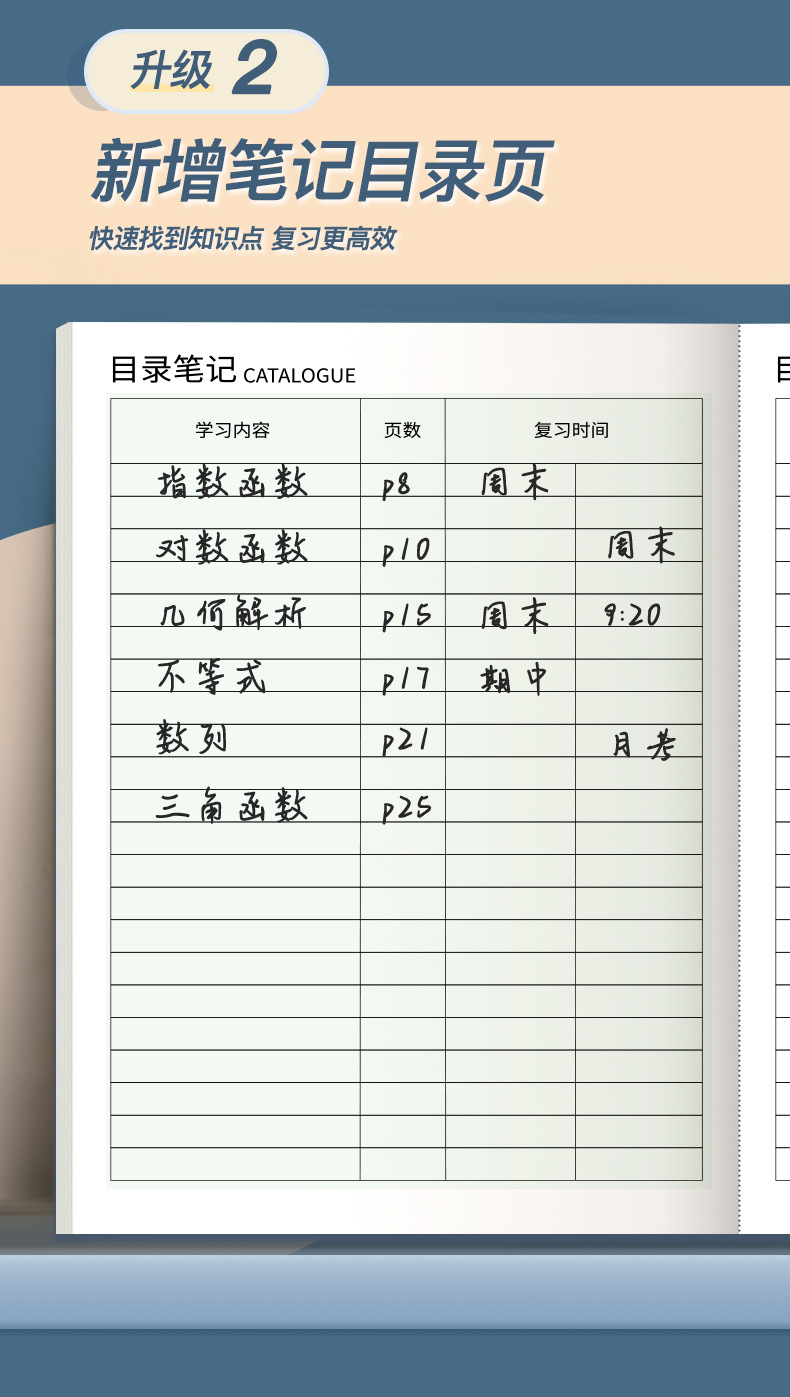 升级 2
新增笔记目录页
快速找到知识点 复习更高效
目录笔记 CATALOGUE
学习内容 页数 复习时间
指数函数 p8 周末
对数函数 p10 周末
几何解析 p15 周末 9:20
不等式 p17 期中
数列 p21 月考
三角函数 p25